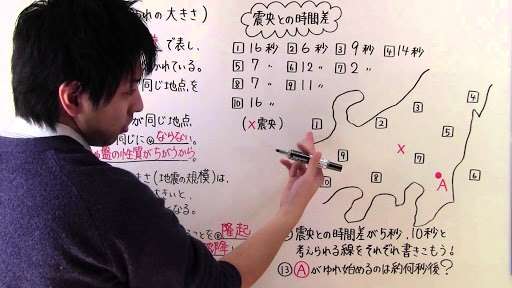 われの大きさ)
で表し、
かれている。
同じ地点を
が同じ地点
同じに◎ならない。
盤の性質がちがうから。
きさ(地震の規模)は、
きいと、
なる。
ることを◎隆起
震央との時間差
1 16秒 2 6秒 3 9秒 4 14秒
5 7〃 6 12〃 7 2〃
8 7〃 9 11〃
10 16〃
(×震央)
1
2
3
4
5
6
7
8
9
×
A
震央との時間差が5秒、10秒と
考えられる線をそれぞれ書きこもう!
⑬ Ⓐがゆれ始めるのは約何秒後?